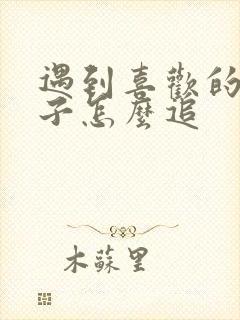 遇到喜歡的
子怎麼追
木蘇里